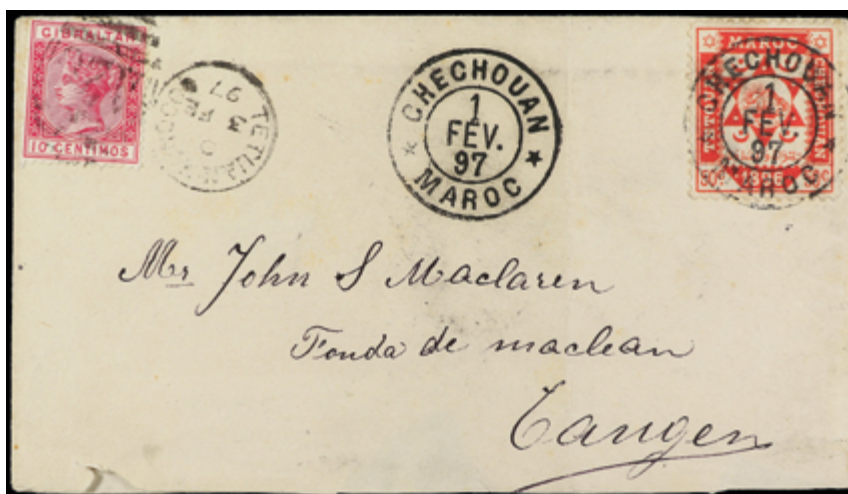 GIBRALTAR
10 CENTIMOS
TETUAN
FE
97
CHECHOUAN
1
FÉV.
97
MAROC
MAROC
1896
CHECHOUAN
1
FÉV.
97
MAROC
Mr John S Maclaren
Fonda de maclean
Tanger